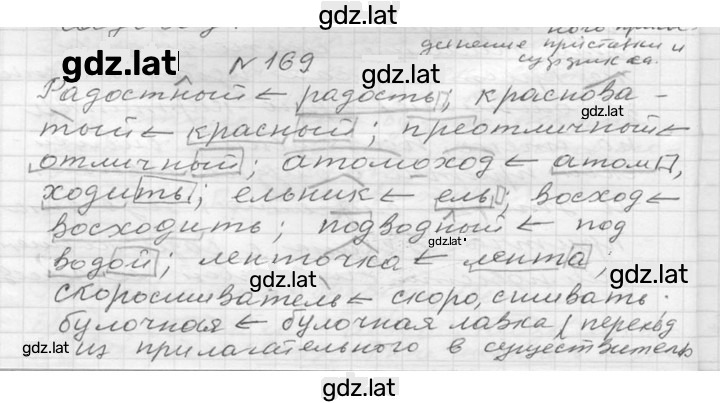 gdz.lat
ного присое-
динение приставки и
суффикса.
gdz.lat
№ 169
gdz.lat
Радостный ← радость; краснова-
gdz.lat
тый ← красный; преотличный ←
отличный; атомоход ← атом,
ходить; ельник ← ель; восход ←
восходить; подводный ← под
gdz.lat
водой; ленточка ← лента;
gdz.lat
gdz.lat
скоросшиватель ← скоро, сшивать.
булочная ← булочная лавка (переход
gdz.lat
из прилагательного в существитель
gdz.lat